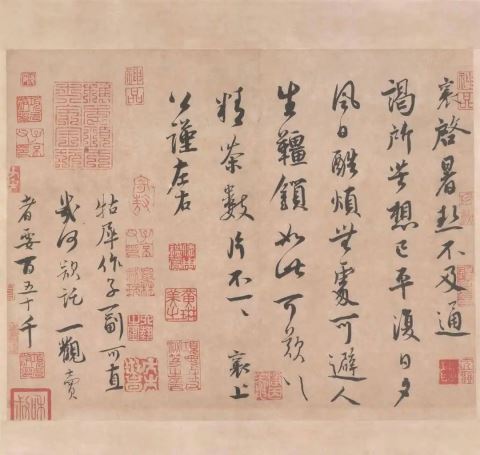 襄啓暑熱不及通
謁所苦想已平復日夕
風日酷煩無處可避人
生韁鎖如此可歎〻
精茶數片不一〻襄上
公謹左右
牯犀作子一副可直
幾何欲託一觀賣
者要百五十千
神品